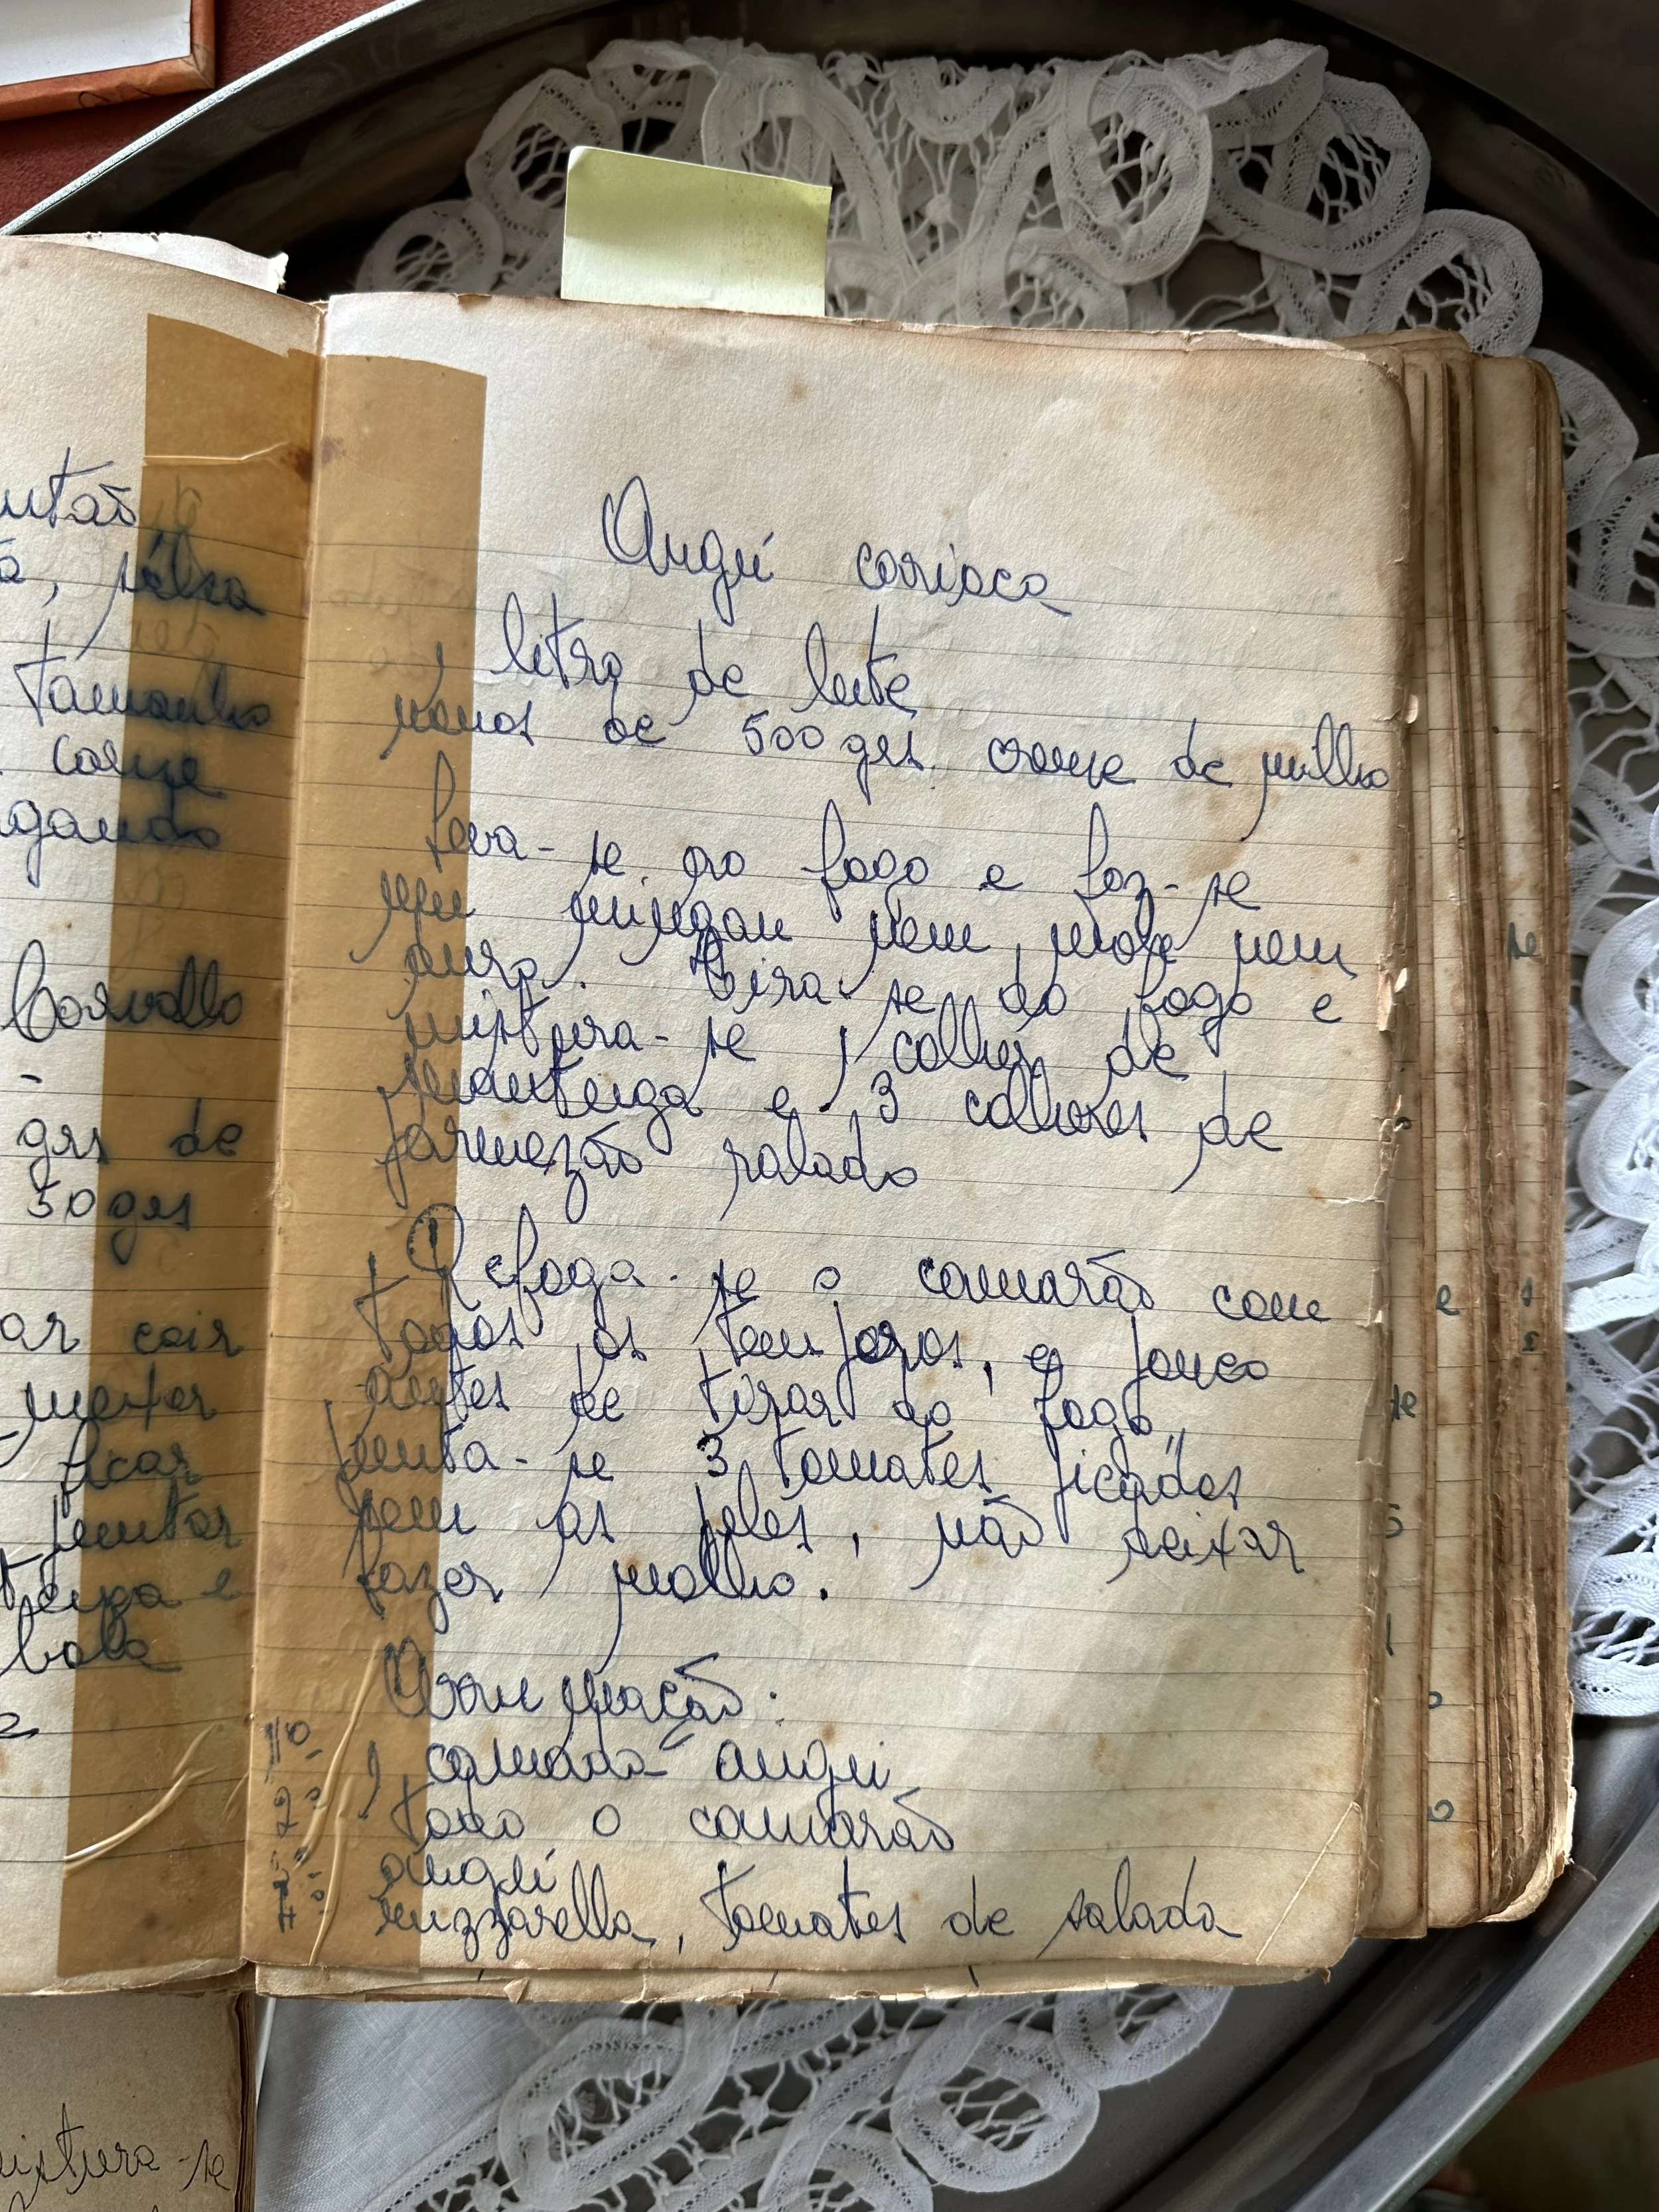 utão
a, salsa
tamanho
carne
gando
Carvalho
-
grs de
50 grs
ar cair
mexer
ficar
juntar
teiga e
bata
Angú carioca
1 litro de leite
menos de 500 grs. creme de milho
Leva-se ao fogo e faz-se
um mingau nem mole nem
duro. Tira-se do fogo e
mistura-se 1 colher de
manteiga e 3 colheres de
parmezão ralado
Refoga-se o camarão com
todos os temperos, e pouco
antes de tirar do fogo,
junta-se 3 tomates picados
sem as peles, não deixar
fazer molho.
Arrumação:
1 camada angú
todo o camarão
angú
muzzarella, tomates de salada
istura-se